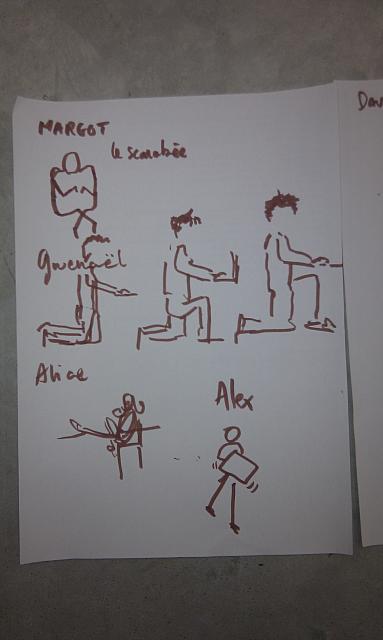 MARGOT
le scarabée
Gwenaël
Alice
Alex